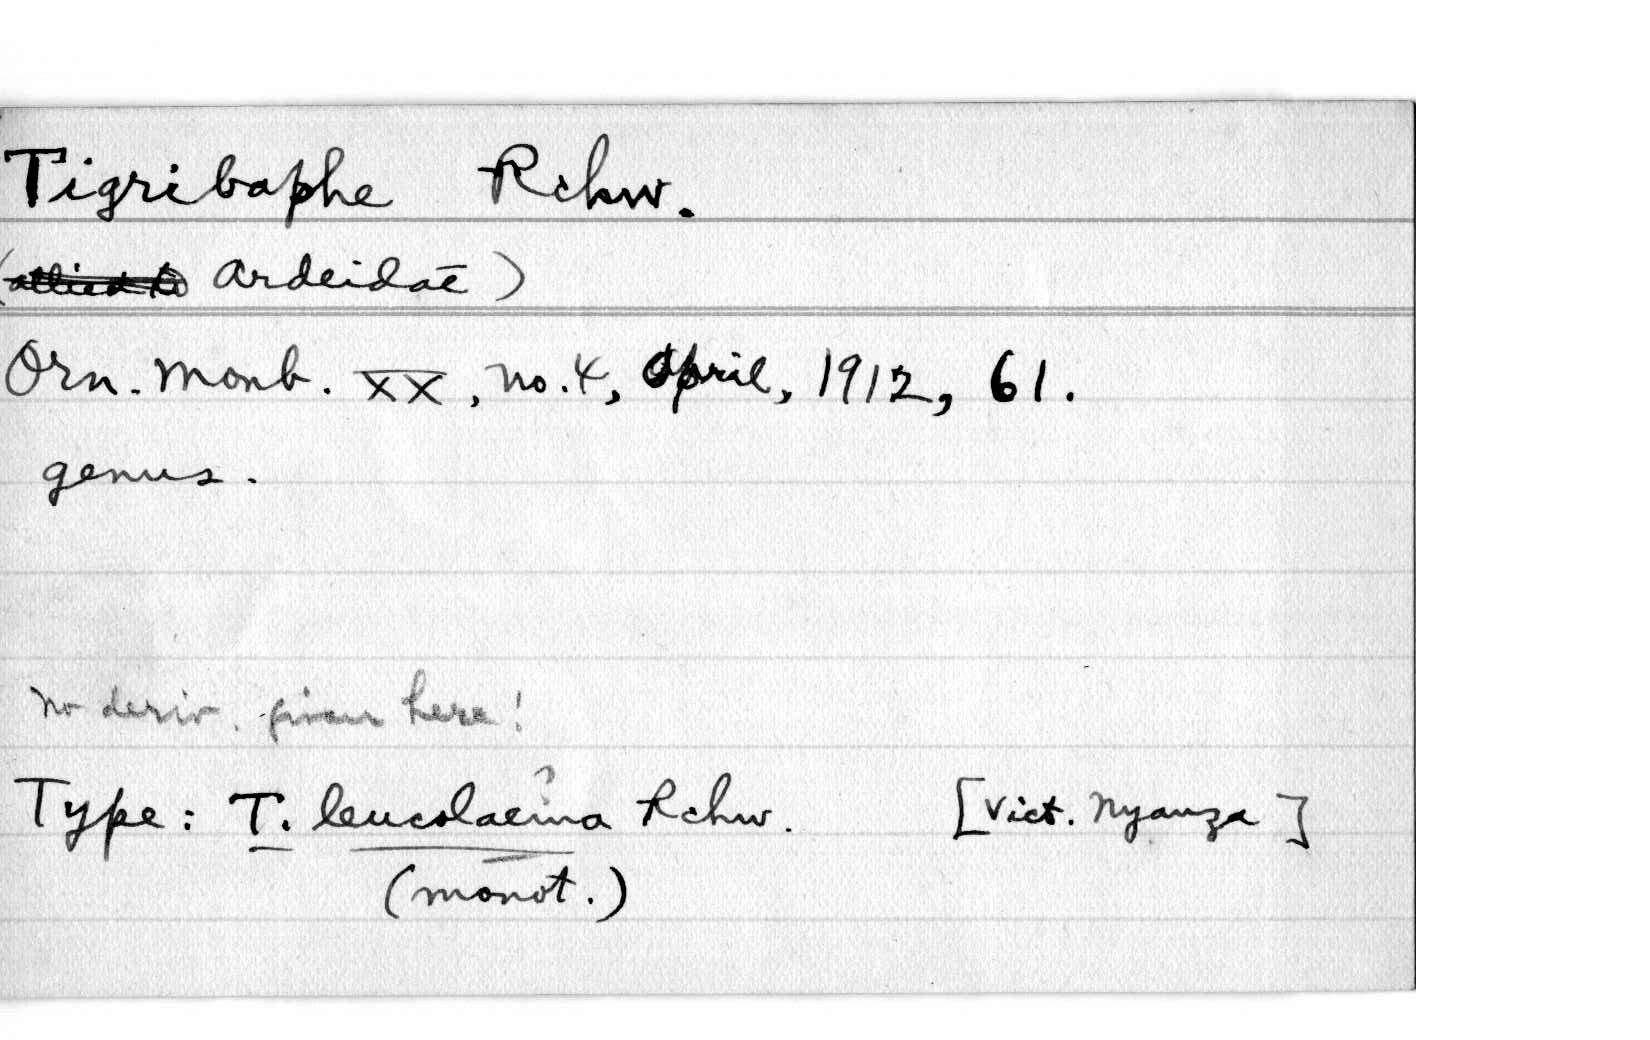 Tigribaphe Rchw.
(allied to Ardeidae)
Orn. Monb. XX, No. 4, April, 1912, 61.
genus.
No deriv. given here!
?
Type: T. leucolaema Rchw. [Vict. Nyanza]
(monot.)